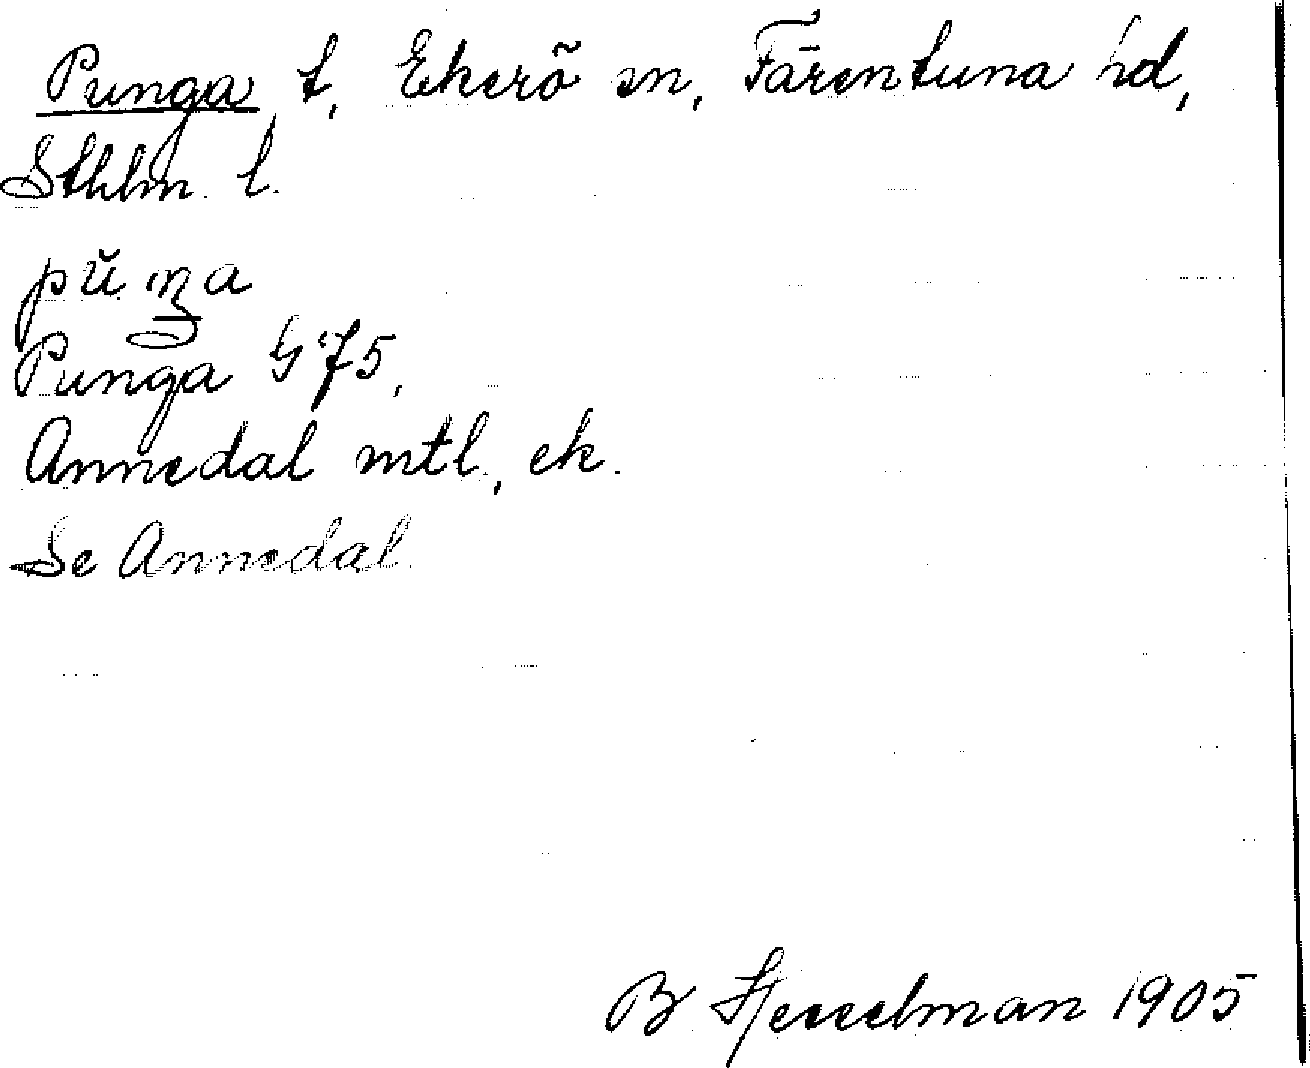 Punga t, Ekerö sn, Färentuna hd,
Sthlm. l.
pŭŋa
Punga G 75,
Annedal mtl., ek.
Se Annedal.
B Hesselman 1905